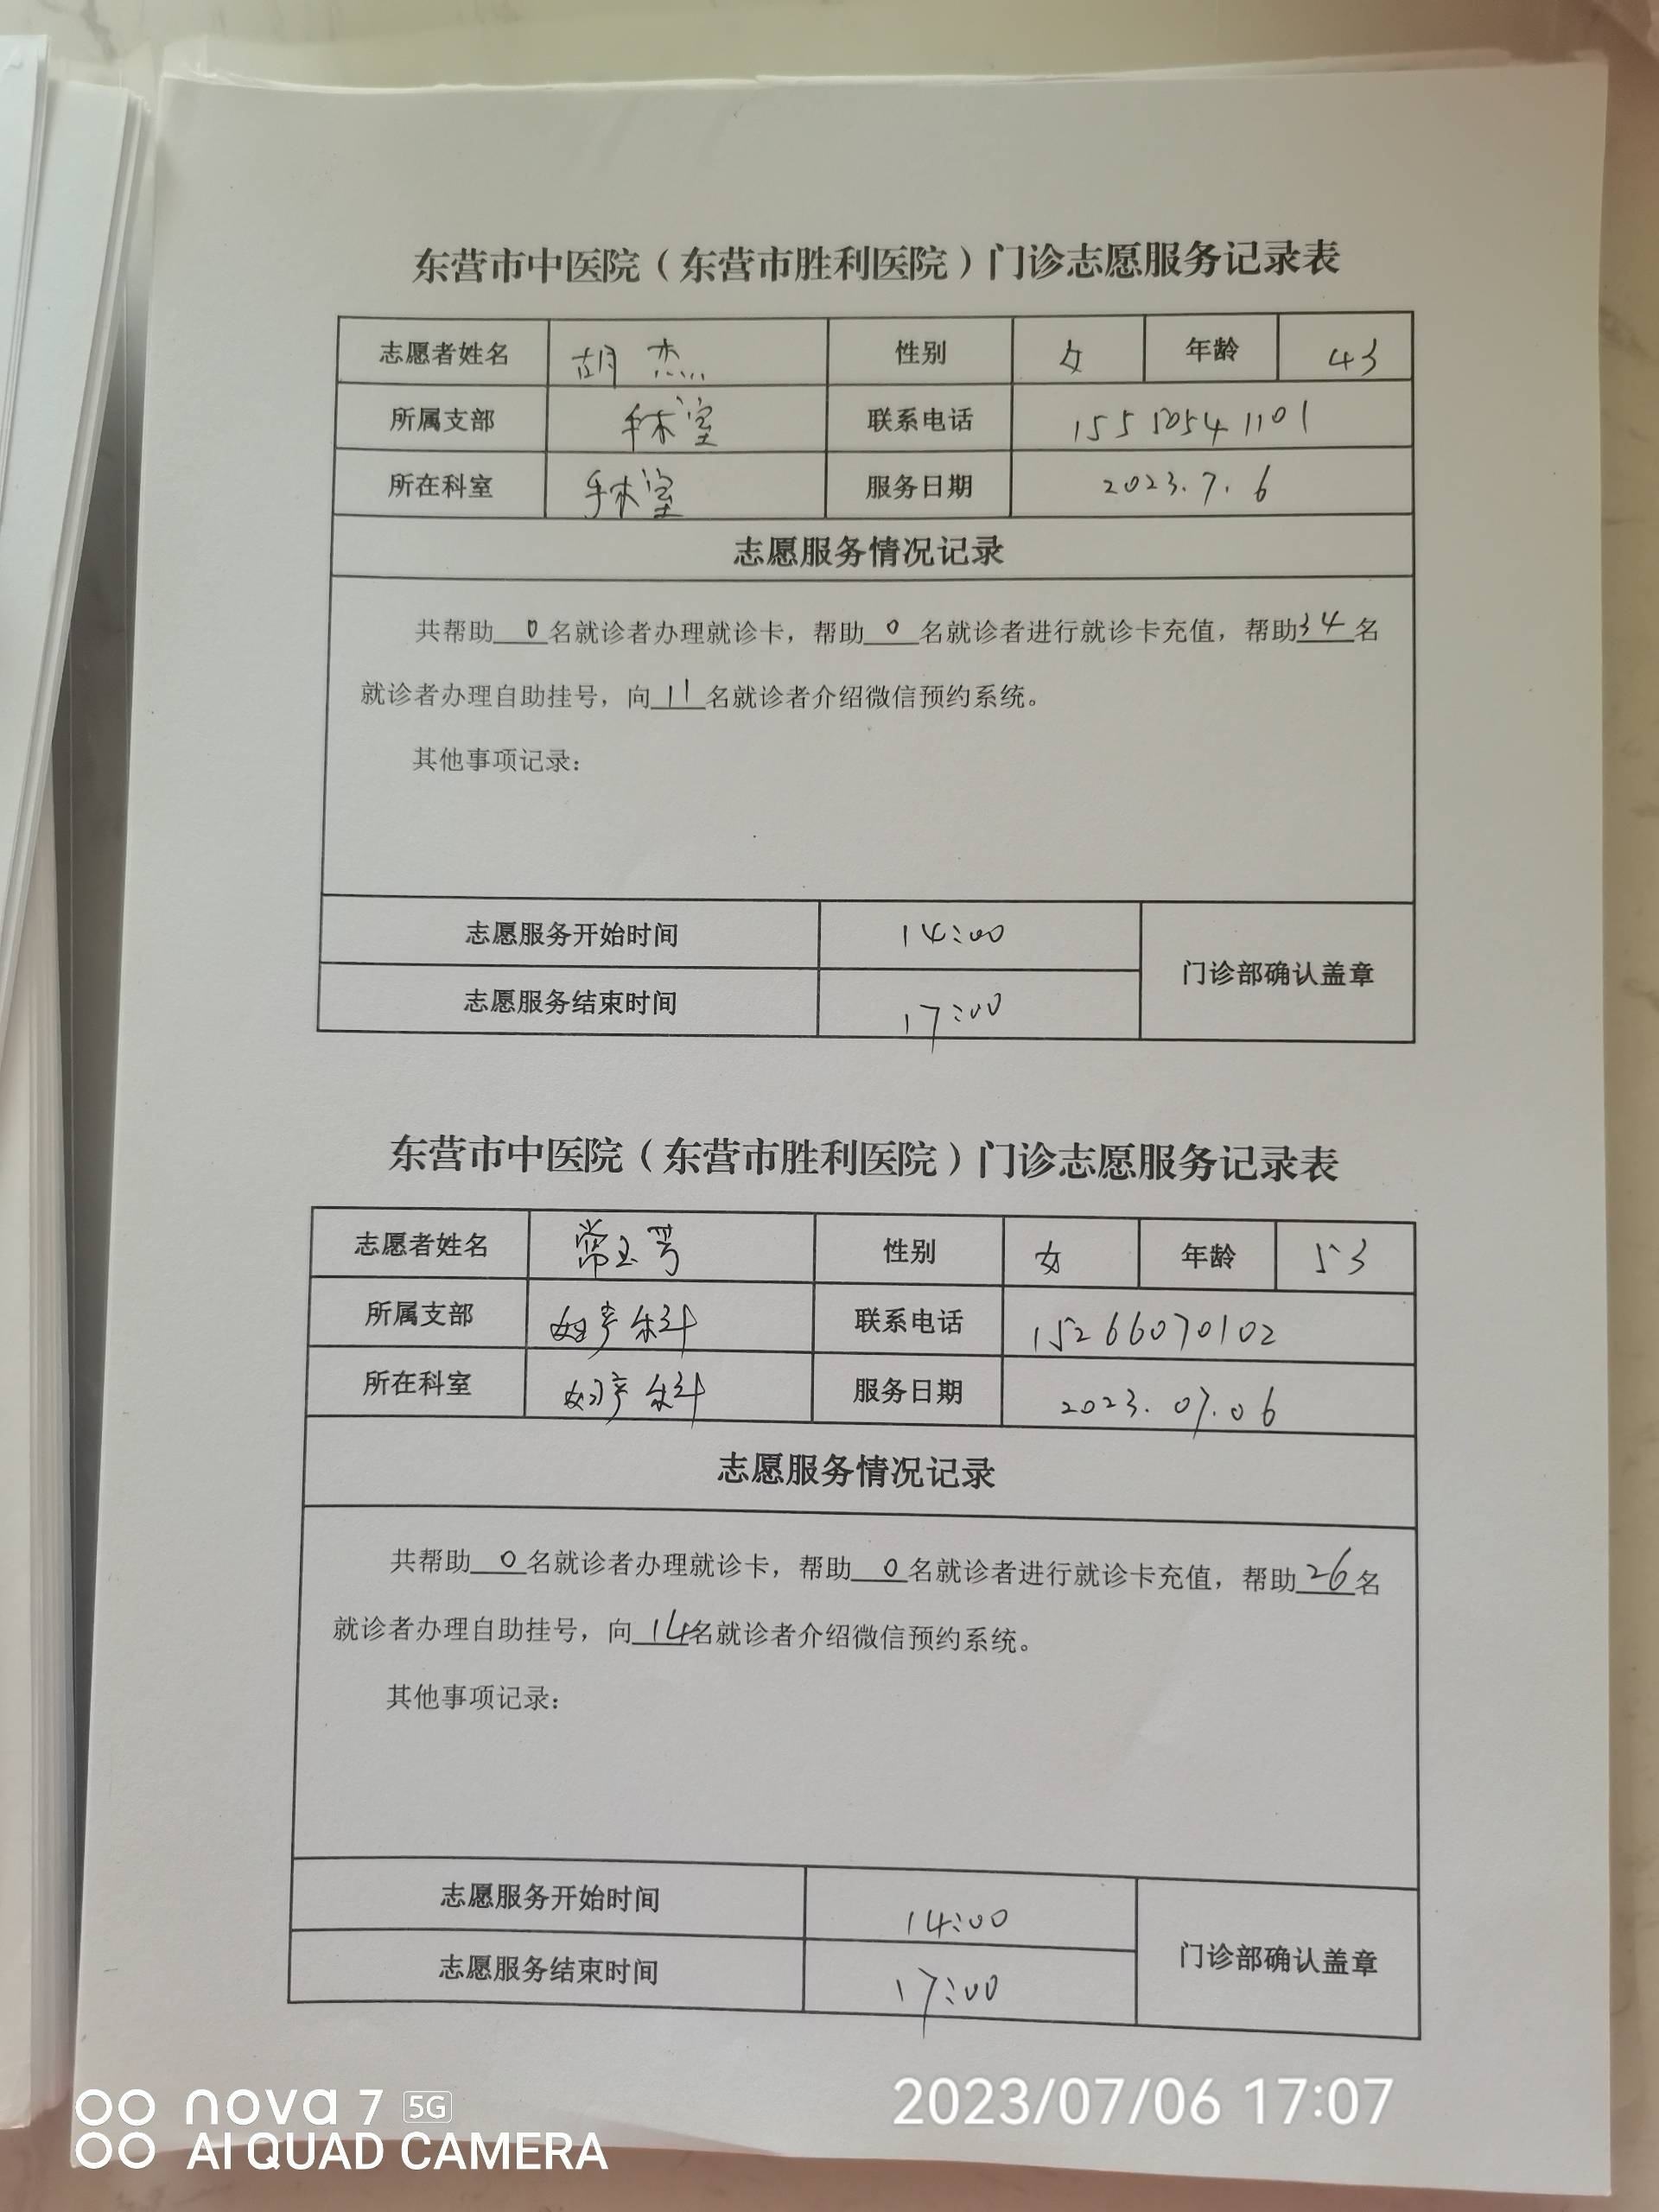 东营市中医院（东营市胜利医院）门诊志愿服务记录表
志愿者姓名 胡杰 性别 女 年龄 43
所属支部 手术室 联系电话 15550541101
所在科室 手术室 服务日期 2023.7.6
志愿服务情况记录
共帮助 0 名就诊者办理就诊卡，帮助 0 名就诊者进行就诊卡充值，帮助34名
就诊者办理自助挂号，向 11 名就诊者介绍微信预约系统。
其他事项记录：
志愿服务开始时间 14:00
门诊部确认盖章
志愿服务结束时间 17:00
东营市中医院（东营市胜利医院）门诊志愿服务记录表
志愿者姓名 常玉 性别 女 年龄 53
所属支部 妇产科 联系电话 15266070102
所在科室 妇产科 服务日期 2023.07.06
志愿服务情况记录
共帮助 0 名就诊者办理就诊卡，帮助 0 名就诊者进行就诊卡充值，帮助26名
就诊者办理自助挂号，向 14名就诊者介绍微信预约系统。
其他事项记录：
志愿服务开始时间 14:00
门诊部确认盖章
志愿服务结束时间 17:00
nova 7 5G
AI QUAD CAMERA
2023/07/06 17:07